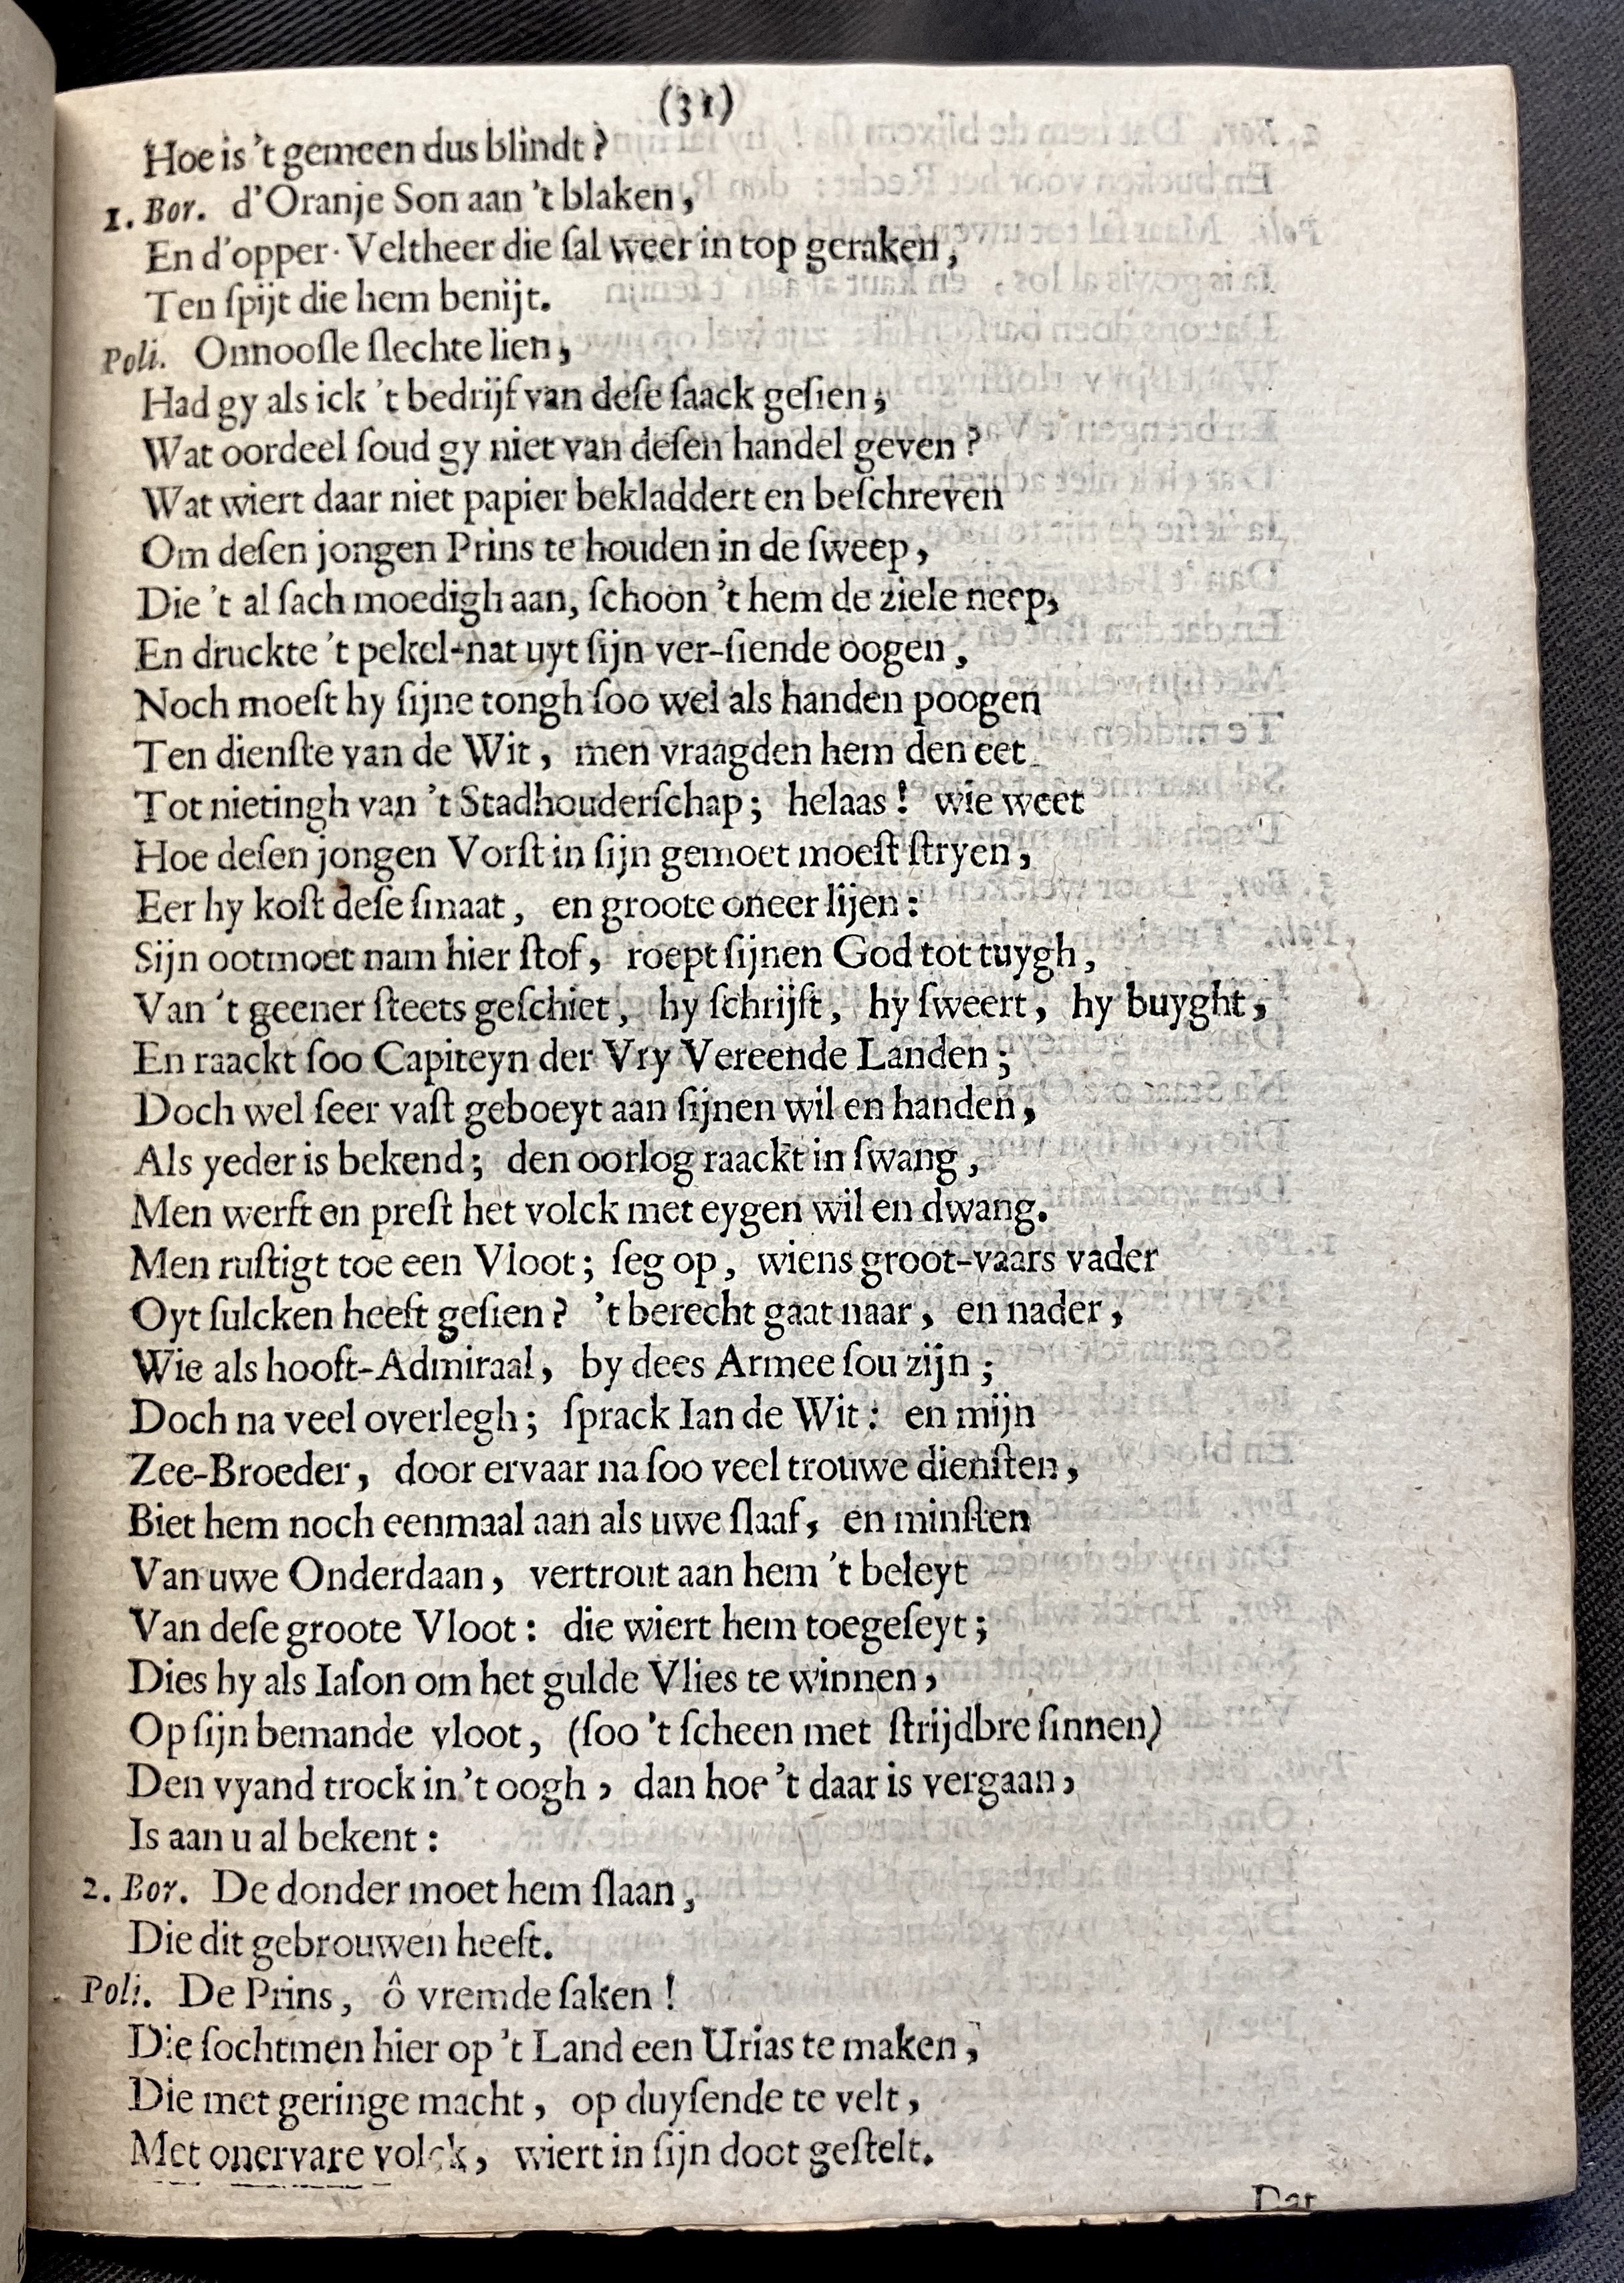 (31)
Hoe is 't gemeen dus blindt?
1. Bor. d'Oranje Son aan 't blaken,
En d'opper-Veltheer die ſal weer in top geraken,
Ten ſpijt die hem benijt.
Poli. Onnooſle ſlechte lien,
Had gy als ick 't bedrijf van deſe ſaack geſien,
Wat oordeel ſoud gy niet van deſen handel geven?
Wat wiert daar niet papier bekladdert en beſchreven
Om deſen jongen Prins te houden in de ſweep,
Die 't al ſach moedigh aan, ſchoon 't hem de ziele neep,
En druckte 't pekel-nat uyt ſijn ver-ſiende oogen,
Noch moeſt hy ſijne tongh ſoo wel als handen poogen
Ten dienſte van de Wit, men vraagden hem den eet
Tot nietingh van 't Stadhouderſchap; helaas! wie weet
Hoe deſen jongen Vorſt in ſijn gemoet moeſt ſtryen,
Eer hy koſt deſe ſmaat, en groote oneer lijen:
Sijn ootmoet nam hier ſtof, roept ſijnen God tot tuygh,
Van 't geener ſteets geſchiet, hy ſchrijft, hy ſweert, hy buyght,
En raackt ſoo Capiteyn der Vry Vereende Landen;
Doch wel ſeer vaſt geboeyt aan ſijnen wil en handen,
Als yeder is bekend; den oorlog raackt in ſwang,
Men werft en preſt het volck met eygen wil en dwang.
Men ruſtigt toe een Vloot; ſeg op, wiens groot-vaars vader
Oyt ſulcken heeft geſien? 't berecht gaat naar, en nader,
Wie als hooft-Admiraal, by dees Armee ſou zijn;
Doch na veel overlegh; ſprack Ian de Wit: en mijn
Zee-Broeder, door ervaar na ſoo veel trouwe dienſten,
Biet hem noch eenmaal aan als uwe ſlaaf, en minſten
Van uwe Onderdaan, vertrout aan hem 't beleyt
Van deſe groote Vloot: die wiert hem toegeſeyt;
Dies hy als Iaſon om het gulde Vlies te winnen,
Op ſijn bemande vloot, (ſoo 't ſcheen met ſtrijdbre ſinnen)
Den vyand trock in 't oogh, dan hoe 't daar is vergaan,
Is aan u al bekent:
2. Bor. De donder moet hem ſlaan,
Die dit gebrouwen heeft.
Poli. De Prins, ô vremde ſaken!
Die ſochtmen hier op 't Land een Urias te maken,
Die met geringe macht, op duyſende te velt,
Met onervare volck, wiert in ſijn doot geſtelt.
Dat